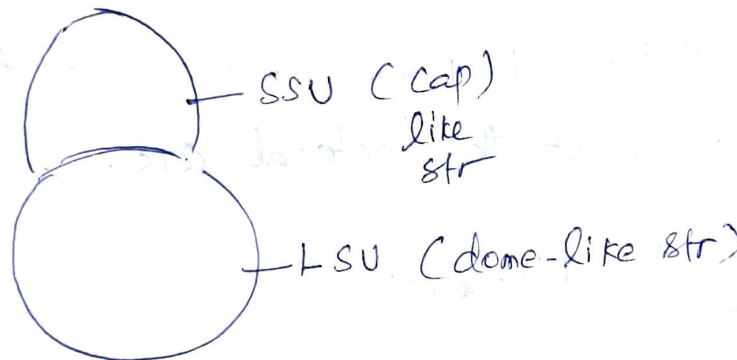 SSU (Cap)
like
str
LSU (dome-like str)